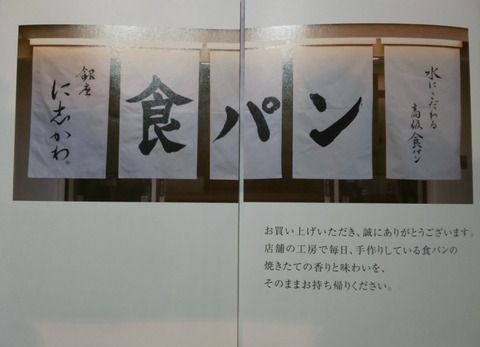 銀座
に志かわ。
食パン
水にこだわる
高級食パン
お買い上げいただき、誠にありがとうございます。
店舗の工房で毎日、手作りしている食パンの
焼きたての香りと味わいを、
そのままお持ち帰りください。